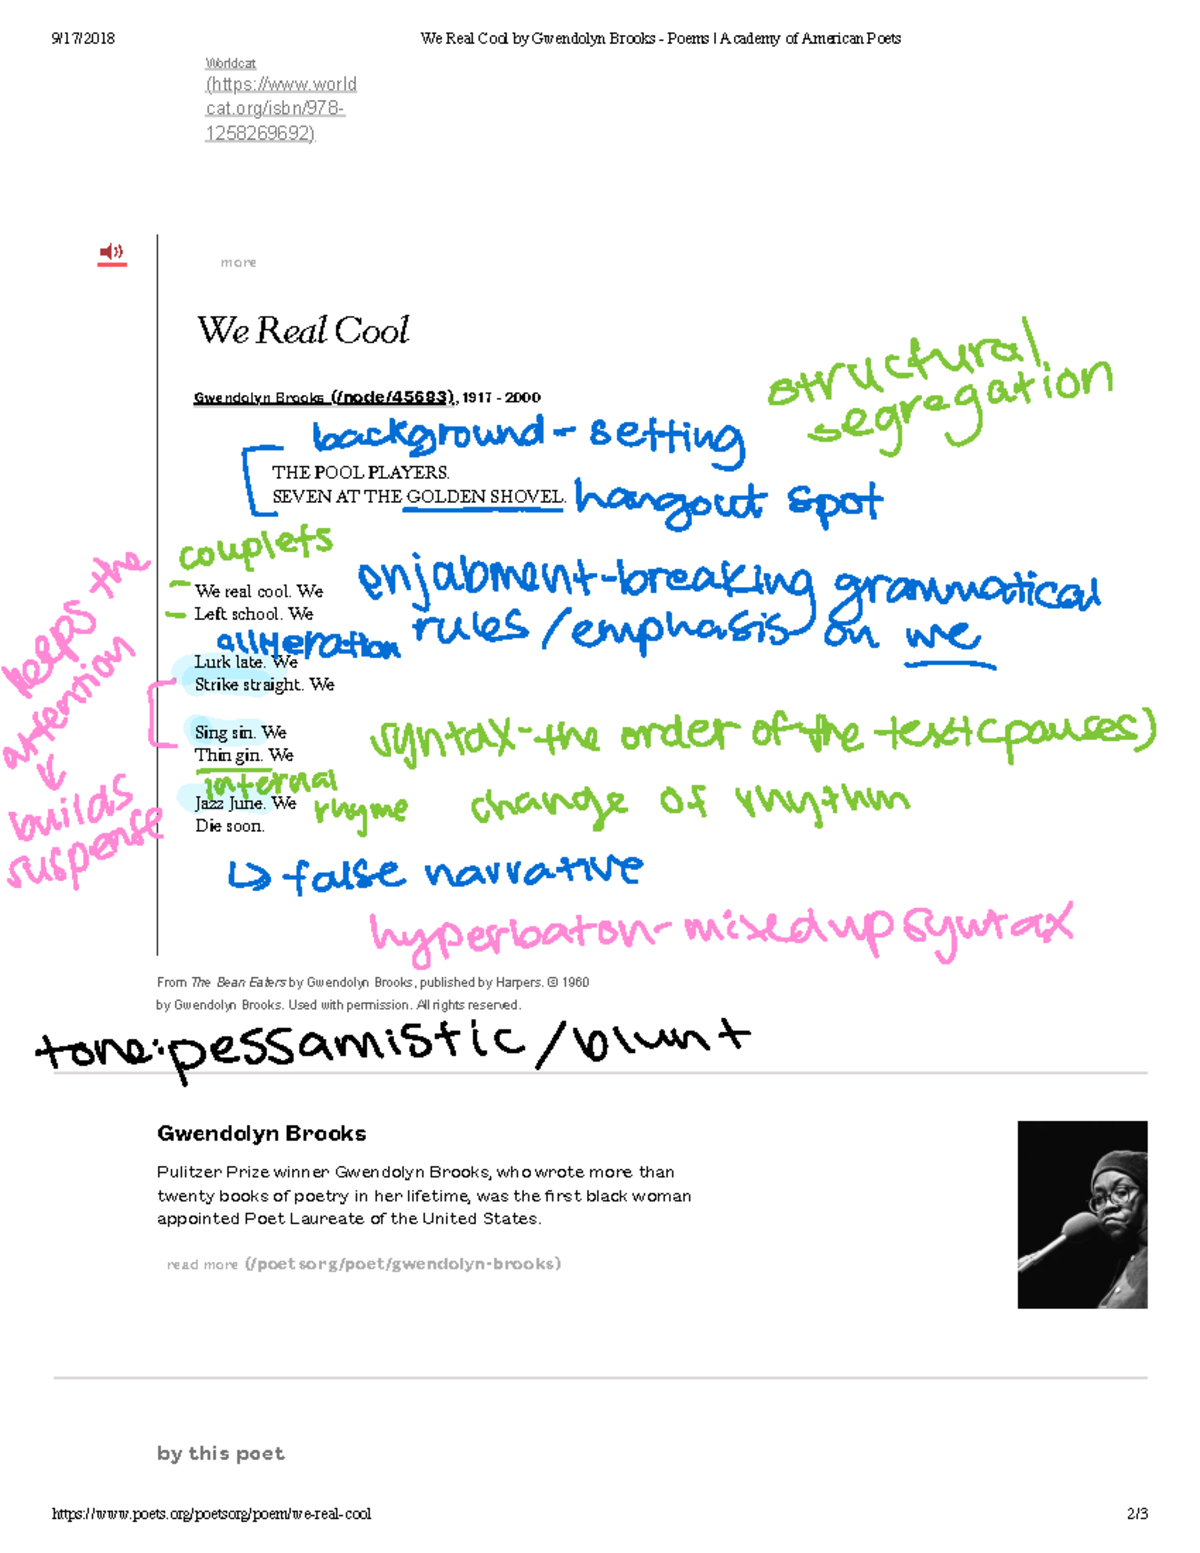 9/17/2018 We Real Cool by Gwendolyn Brooks - Poems | Academy of American Poets
Worldcat
(https://www.world
cat.org/isbn/978-
1258269692)
more
We Real Cool
structural
segregation
Gwendolyn Brooks (/node/45683), 1917 - 2000
background - setting
THE POOL PLAYERS.
SEVEN AT THE GOLDEN SHOVEL.
hangout spot
couplets
We real cool. We
Left school. We
enjabment-breaking grammatical
rules/emphasis on we
alliteration
Lurk late. We
Strike straight. We
keeps the
attention
builds
suspense
Sing sin. We
Thin gin. We
syntax-the order of the text(pauses)
internal
rhyme
change of rhythm
Jazz June. We
Die soon.
↳ false narrative
hyperbaton-mixed up syntax
From The Bean Eaters by Gwendolyn Brooks, published by Harpers. © 1960
by Gwendolyn Brooks. Used with permission. All rights reserved.
tone:pessamistic/blunt
Gwendolyn Brooks
Pulitzer Prize winner Gwendolyn Brooks, who wrote more than
twenty books of poetry in her lifetime, was the first black woman
appointed Poet Laureate of the United States.
read more (/poetsorg/poet/gwendolyn-brooks)
by this poet
https://www.poets.org/poetsorg/poem/we-real-cool 2/3